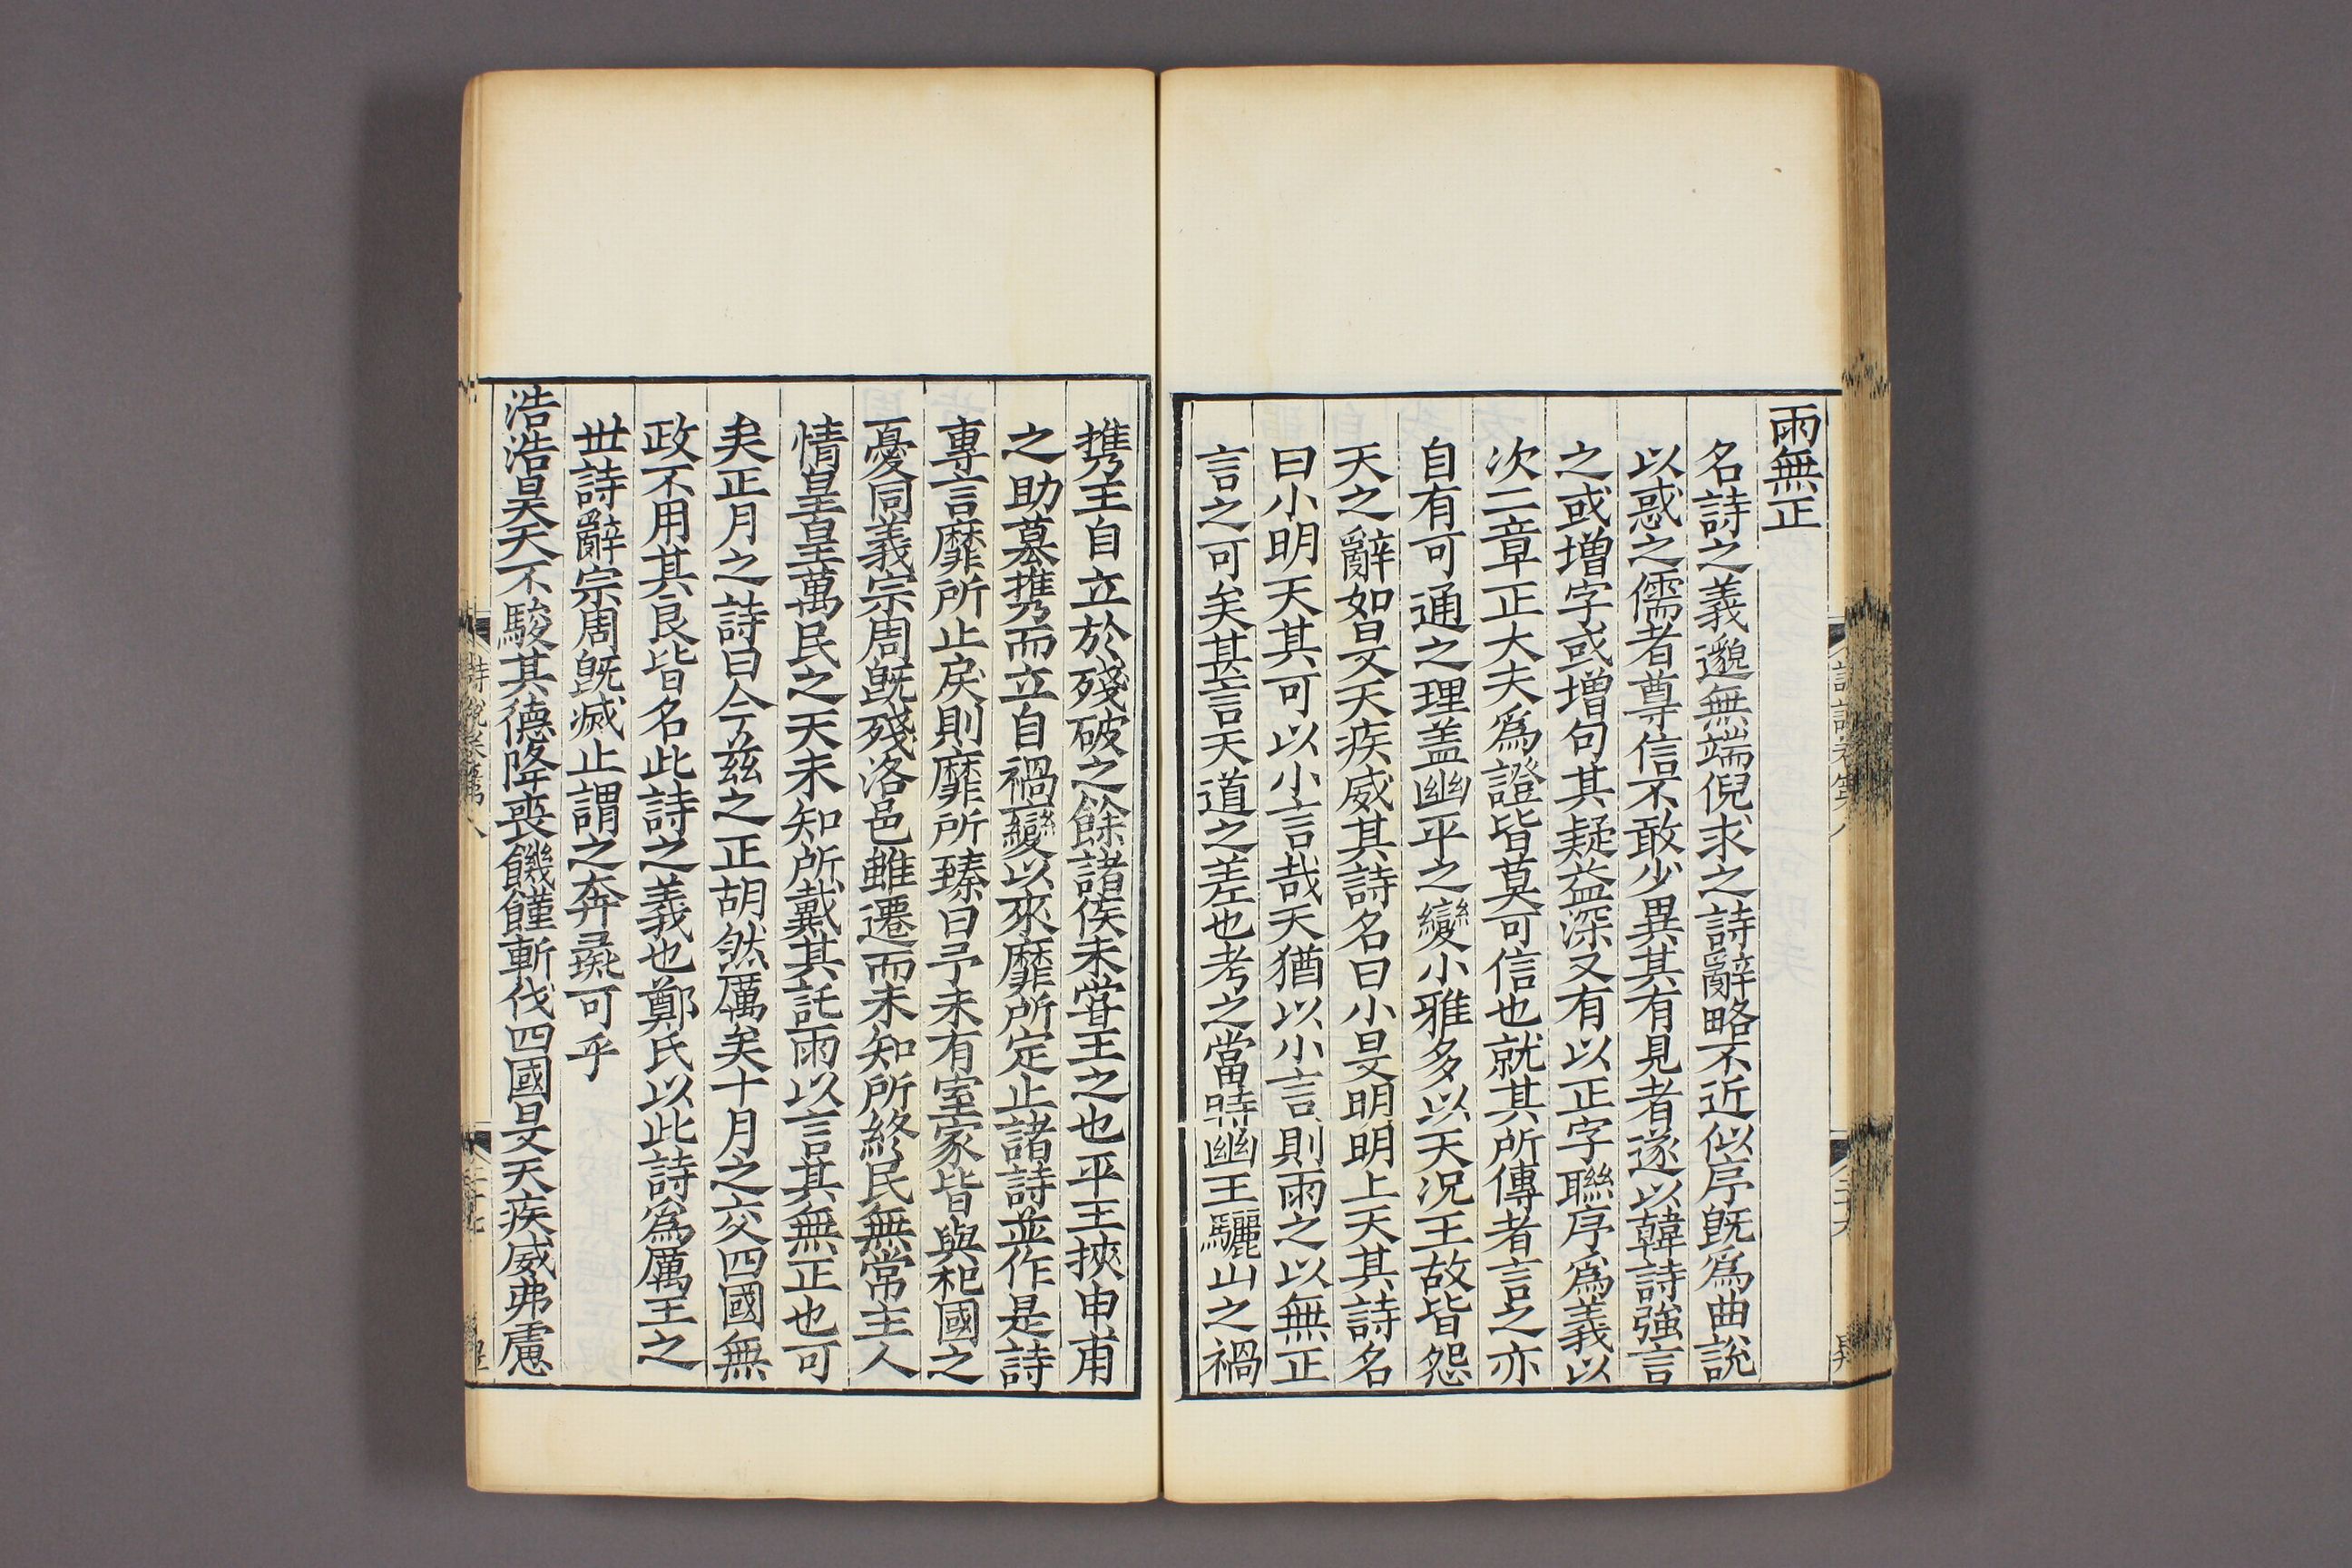 雨無正
名詩之義邈無端倪求之詩辭略不近似序旣爲曲說
以惑之儒者尊信不敢少異其有見者遂以韓詩強言
之或增字或增句其疑益深又有以正字聯序爲義以
次二章正大夫爲證皆莫可信也就其所傳者言之亦
自有可通之理盖幽平之變小雅多以天況王故皆怨
天之辭如旻天疾威其詩名曰小旻明明上天其詩名
曰小明天其可以小言哉天猶以小言則雨之以無正
言之可矣甚言天道之差也考之當時幽王驪山之禍
攜王自立於殘破之餘諸侯未甞王之也平王挾申甫
之助墓攜而立自禍變以來靡所定止諸詩並作是詩
專言靡所止戾則靡所臻曰予未有室家皆與杞國之
憂同義宗周旣殘洛邑雖遷而未知所終民無常主人
情皇皇萬民之天未知所戴其託雨以言其無正也可
矣正月之詩曰今兹之正胡然厲矣十月之交四國無
政不用其良皆名此詩之義也鄭氏以此詩爲厲王之
世詩辭宗周旣滅止謂之奔彘可乎
浩浩昊天不駿其德降喪饑饉斬伐四國旻天疾威弗慮